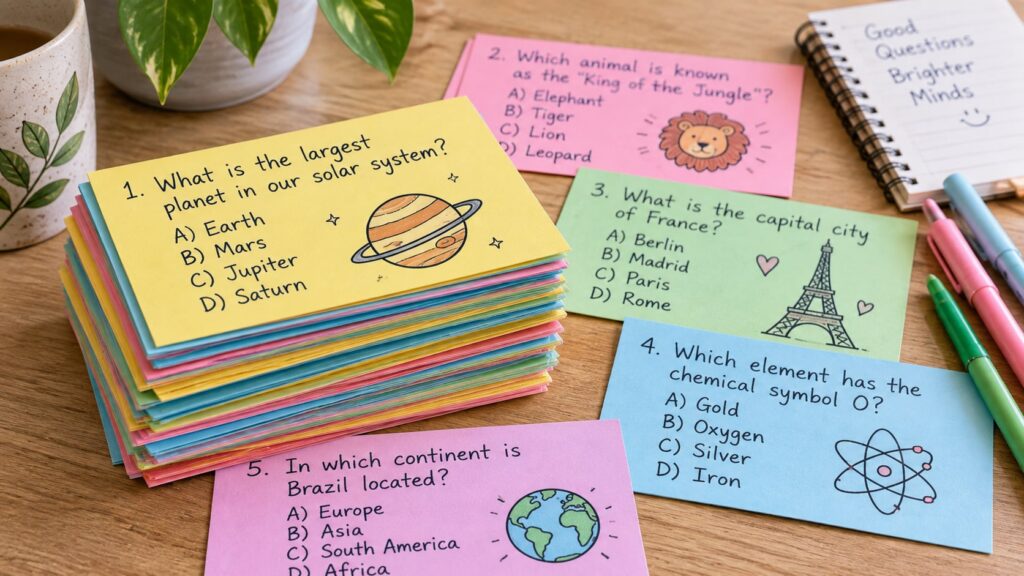 1. What is the largest
planet in our solar system?
A) Earth
B) Mars
C) Jupiter
D) Saturn
2. Which animal is known
as the "King of the Jungle"?
A) Elephant
B) Tiger
C) Lion
D) Leopard
3. What is the capital city
of France?
A) Berlin
B) Madrid
C) Paris
D) Rome
4. Which element has the
chemical symbol O?
A) Gold
B) Oxygen
C) Silver
D) Iron
5. In which continent is
Brazil located?
A) Europe
B) Asia
C) South America
D) Africa
Good
Questions
Brighter
Minds